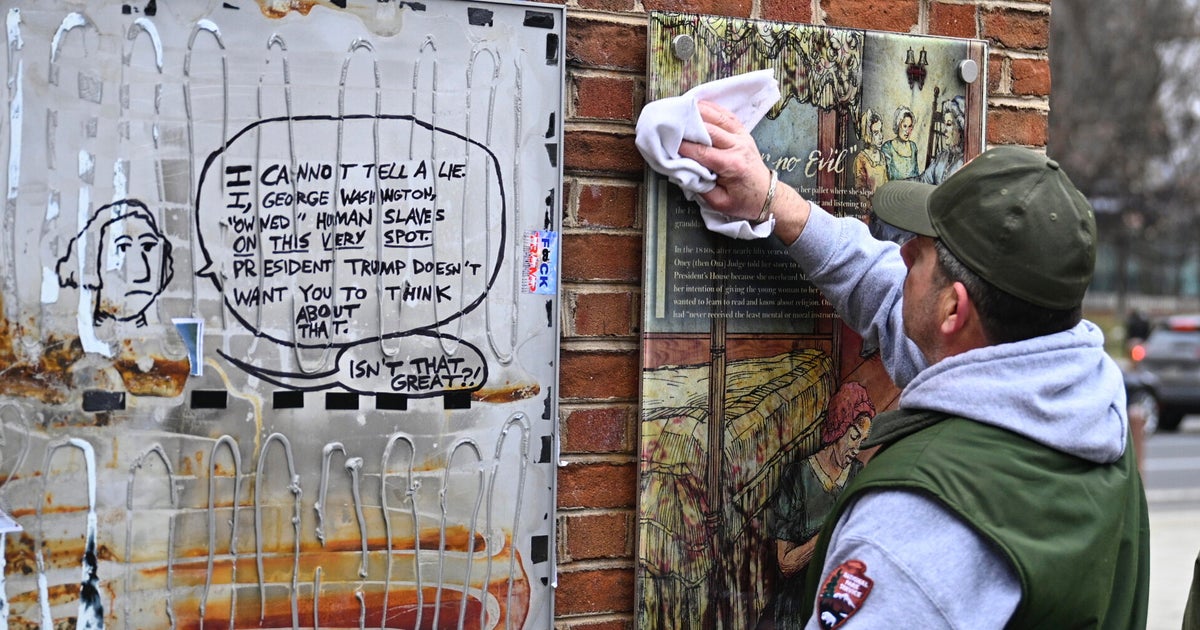 I CANNOT TELL A LIE.
I, GEORGE WASHINGTON,
"OWNED" HUMAN SLAVES
ON THIS VERY SPOT.
PRESIDENT TRUMP DOESN'T
WANT YOU TO THINK
ABOUT
THAT.
ISN'T THAT
GREAT?!
no Evil"
her pallet where she slept
and listening to
In the 1840s, after nearly fifty years
Oney (then Ona) Judge told her story to
President's House because she overheard
her intention of giving the young woman to her
wanted to learn to read and know about religion.
had "never received the least mental or moral instruction
NATIONAL
PARK
SERVICE